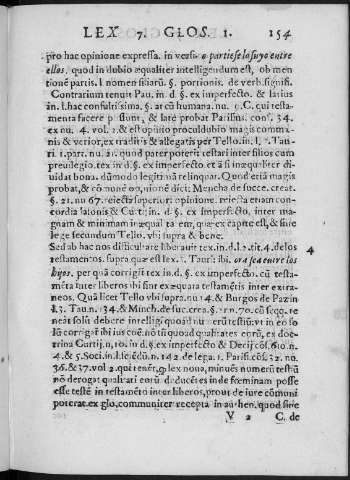 LEX 7. GLOS 1. 154
pro hac opinione expressa. in versu o partiese lo suyo entre
ellos, quod in dubio æqualiter intelligendum est, ob men
tionē partis. l. nomen filiarū. §. portionis. de verb. signifi.
Contrarium tenuit Pau. in d. §. ex imperfecto. & latius
in. l. hac consultissima. §. at cū humana. nu. 9. C. qui testa-
menta facere possunt, & late probat Parisius. cons. 34.
ex nu. 4. vol. 2. & est opinio proculdubio magis commu-
nis & verior, ex traditis & allegatis per Tello. in l. 1. Tau-
ri. 1. part. nu. 21. quod pater poterit testari inter filios cum
preudicio. tex in d. §. ex imperfecto. et ā si inæqualiter di-
uidat bona. dūmodo legitimā relinquat. Quod etiā magis
probat, & cōmunē opinionē dicit Mencha de succe. creat.
§. 21. nu 67. reiecta superiori opinione. reiecta etiam con-
cordia Iasonis & Curtii in. d. §. ex imperfecto, inter ma-
gnam & minimam inæqualitatem, quæ ex capite est, & sine
lege secundum Tello. vbi supra & bene.
Sed ab hac nos difficultate liberauit tex. in d. l. 2. tit. 4. de los 4
testamentos. supra quæ est lex. 3. Tauri: ibi. ora sea entre los
hijos. per quā corrigit tex in d. §. ex imperfecto. cū testa-
mēta inter liberos ibi sunt exæquata testamētis inter extra-
neos. Quā licet Tello vbi supra. nu 4. & Burgos de Paz in
d. l. 3. Tau. n. 134. & Minch. de suc. crea. §. n. 70. cū seqq. te
neāt solū debere intelligi quoad numerū testiū: vt in eo so
lū corrigat ibi ius cōē. nō tū quoad qualitates eorū, ex doc-
trina Curtij. n, 10. in d. §. ex imperfecto & Decij cōs. 610. n.
4. & 5. Soci. in d. lic edū. n. 14 2. de lega. 1. Paris. cōs. 32. nu.
36. & 37. vol 2. qui tenēt, q; lex noua, minuēs numerū testiū
nō derogat qualitati eorū dicētes inde fœminam posse
esse testē in testamēto inter liberos, prout de iure cōmuni
poterat ex glo. communiter recepta in authen. quod sine
V 2 C. de